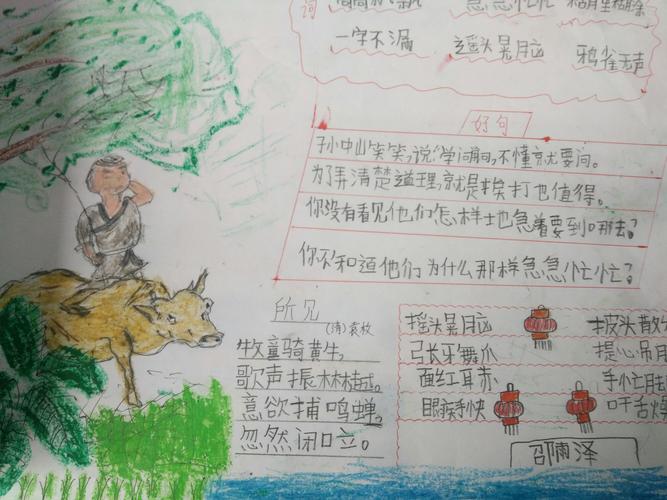 词
急急忙忙 糊里糊涂
一字不漏 摇头晃脑 鸦雀无声
好句
孙中山笑笑,说:"学问问,不懂就要问。
为了弄清楚道理,就是挨打也值得。
你没有看见他们怎样地急着要到哪去?
你不和道他们为什么那样急急忙忙?
所见
(清)袁枚
牧童骑黄牛,
歌声振林樾。
意欲捕鸣蝉,
忽然闭口立。
摇头晃脑 披头散
张牙舞爪 提心吊
面红耳赤 手忙
眼疾手快 口干舌
邵雨泽